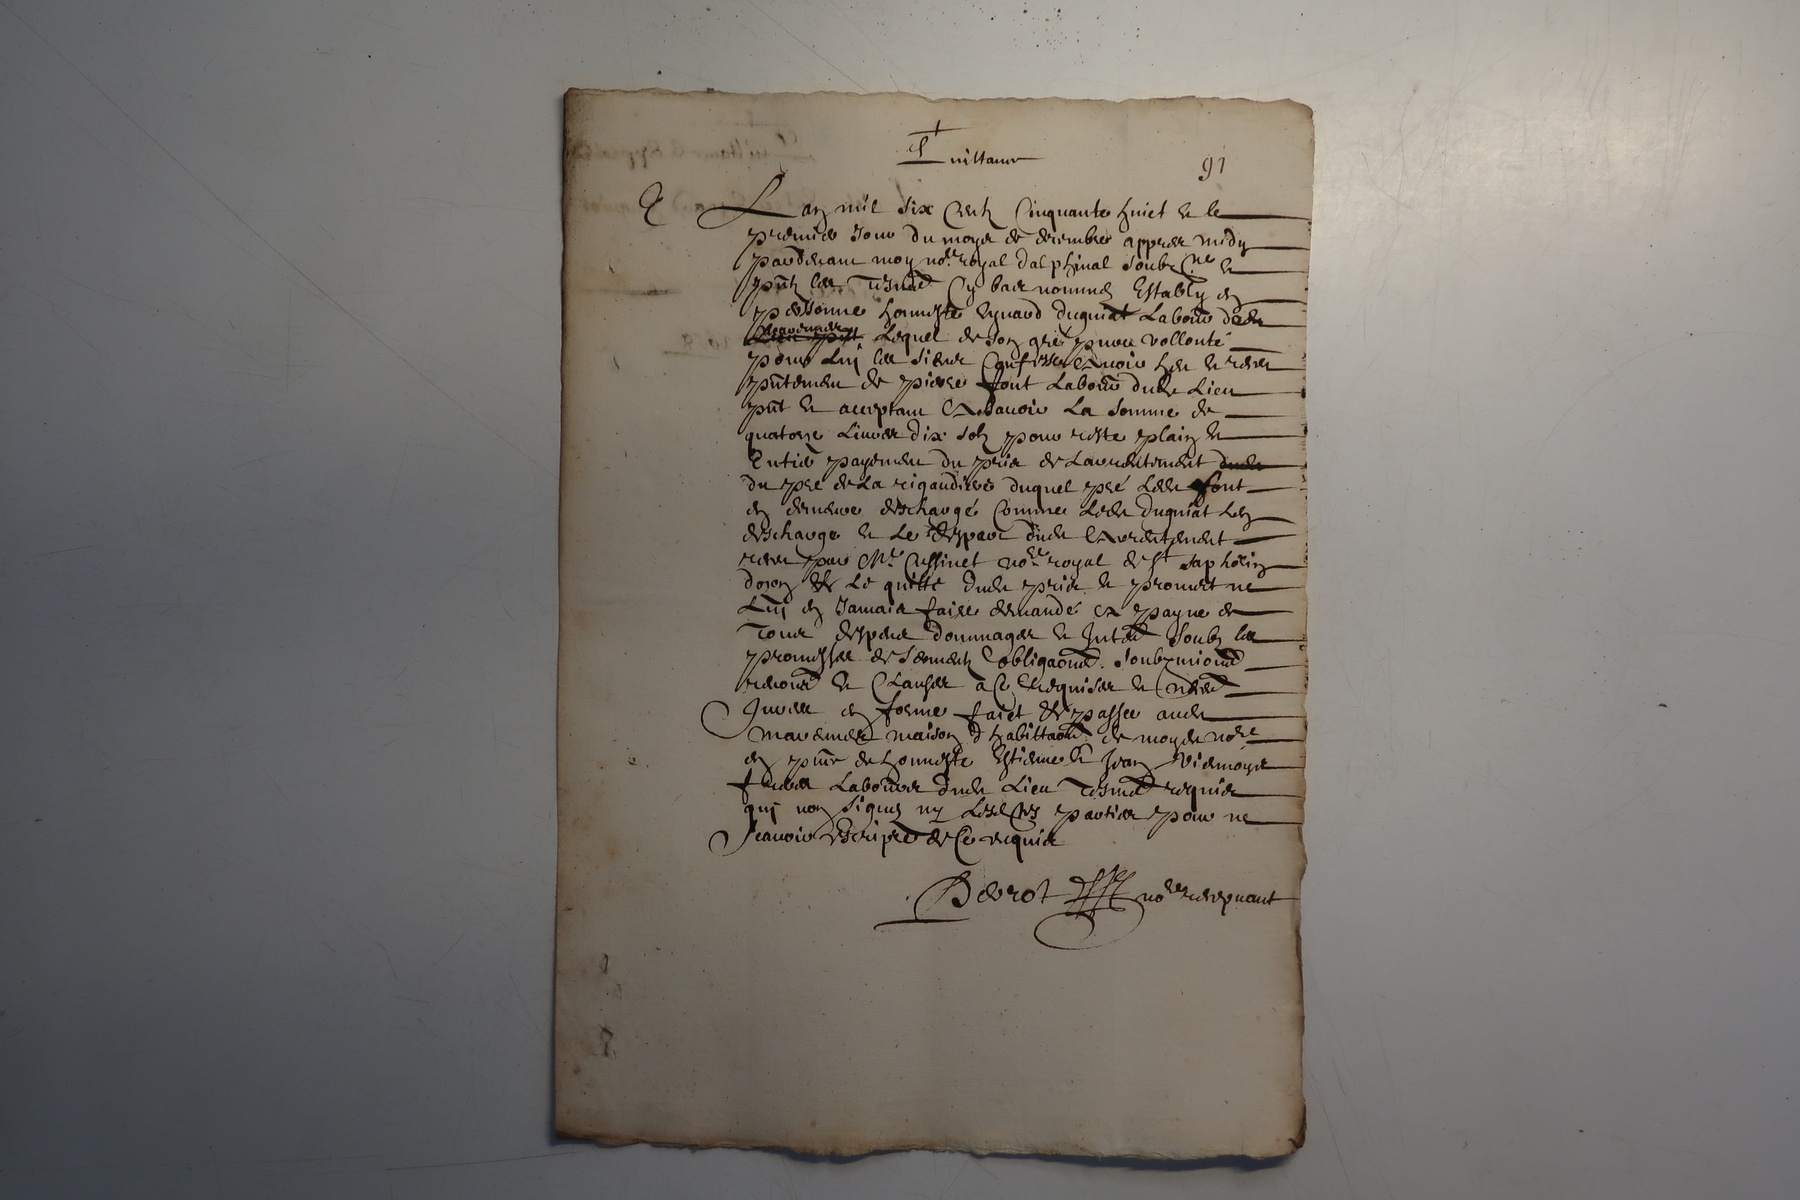 Quittance
91
Lan mil six Centz Cinquante huict et le
premier Jour du moys de decembre appres midy
pardevant moy no.re royal dalphinal soubz.ne et
p̃ntz les tesmos Cy bas nommes Estably en
personne honneste Eynard Duquiat Labour dede
Lequel de son gré pure vollonté
pour Luy les siens Confesse Avoir heu et receu
p̃ntement de pierre font Labour dude Lieu
p̃nt et acceptant A Scavoir La somme de
quatorze Livres dix solz pour reste plain et
Entier payement du prix de Larrentement
du pré de La rigaudiere duquel pré Lede font
en demeure deschargé Comme Lede duquiat Len
descharge et Le dude Arrentement
receu par M.e Cussinet no.re royal de st saphorin
dozon Le quitte dude prix et promet ne
Luy en Jamais faire demande A payne de
tous despens dommages et Intes soubz les
promesses de serment obligaons soubzmions
renons et Clauses a Ce Requises et necess
Jurees en forme faict et passe aude
maison dhabittaon de moyde no.re
en p̃nce de honneste Estienne et Jean
freres Laboures dude Lieu tesmos requis
qui non signes ny Lesdes parties pour ne
scavoir Escripre de Ce enquis
no.re recepvant